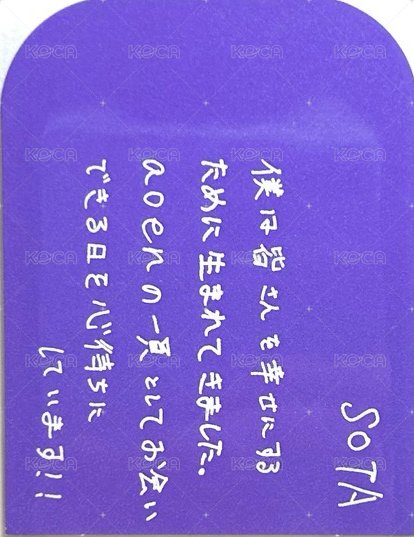 僕は皆さんを幸せにする
ために生まれてきました。
aoenの一員としてお会い
できる日を心待ちに
しています!!
SOTA
KOCA